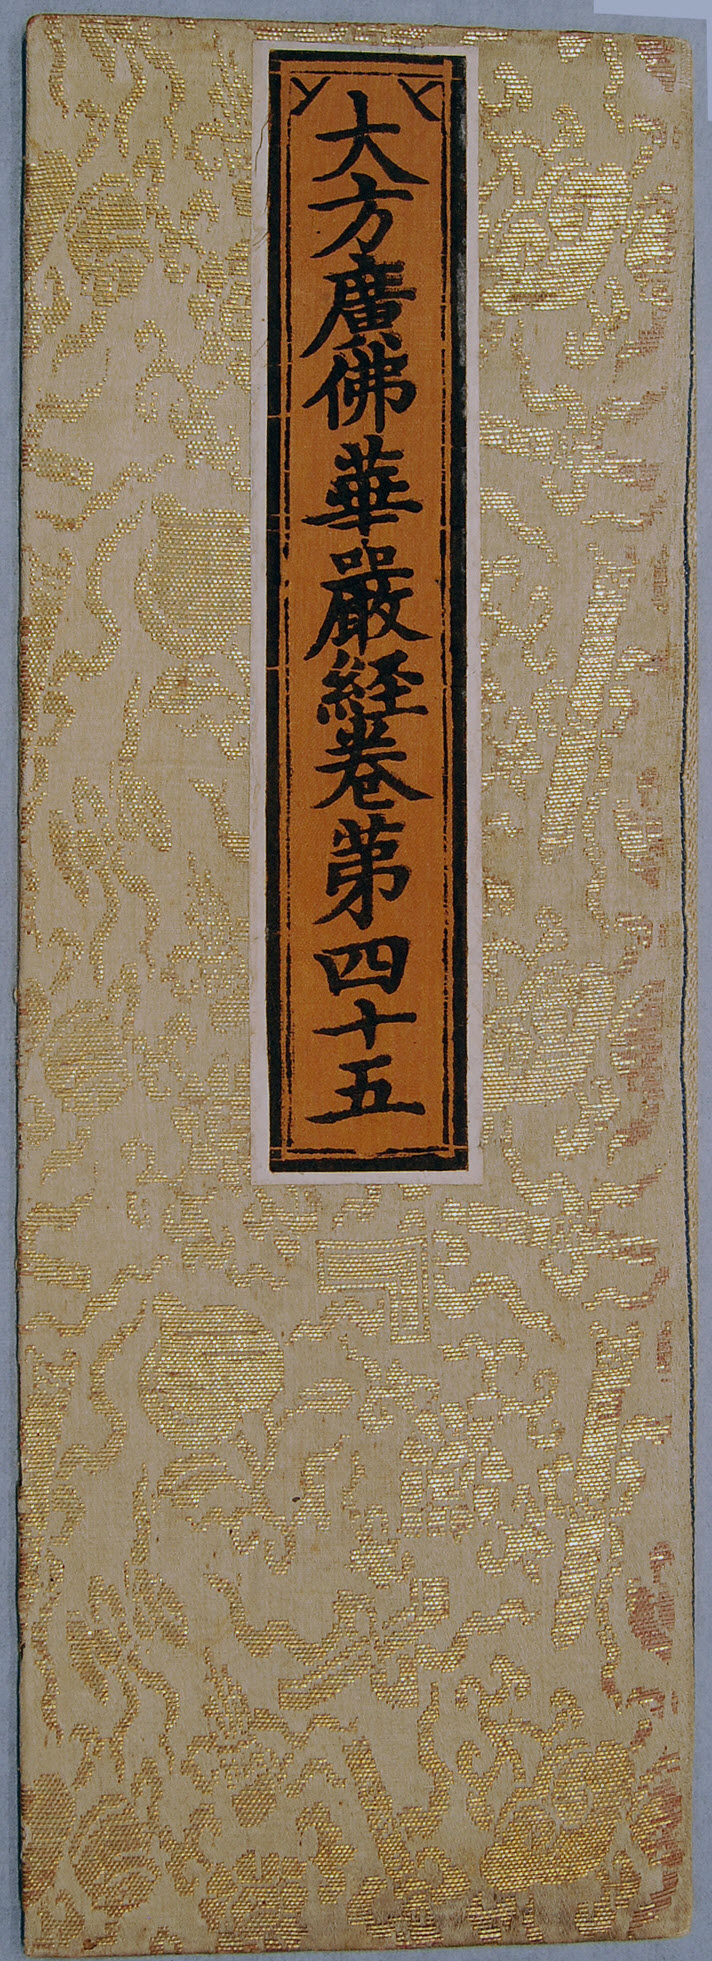 大方廣佛華嚴經卷第四十五